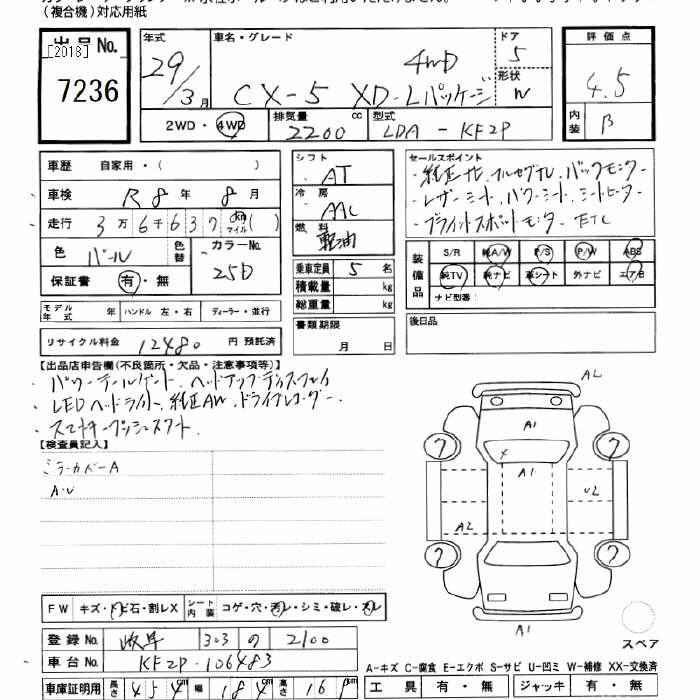 (複合機)対応用紙
出品No.
[2018]
7236
年式
29/3月
車名・グレード
4WD
CX-5 XD-Lパッケージ
ドア
5
形状
W
評価点
4.5
内装
B
2WD・4WD
排気量
2200 cc
型式
LDA-KF2P
車歴 自家用・( )
車検 R8年 8月
走行 3万6千637 km マイル ( )
色 パール 色替
カラーNo. 25D
保証書 有・無
モデル年式 年 ハンドル 左・右 ディーラー・並行
リサイクル料金 12480 円 預託済
シフト
AT
冷房
AAC
燃料
軽油
乗車定員 5 名
積載量 kg
総重量 kg
書類期限
月 日
セールスポイント
・純正ナビ、フルセグTV、バックモニター
・レザーシート、パワーシート、シートヒーター
・ブラインドスポットモニター ETC
装備品
S/R 純A/W P/S P/W ABS
純TV 純ナビ 革シート 外ナビ エアB
ナビ型番:
後日品
【出品店申告欄(不良箇所・欠品・注意事項等)】
・パワーテールゲート、ヘッドアップディスプレイ
・LEDヘッドライト、純正AW、ドライブレコーダー、
・スマートキープッシュスタート
【検査員記入】
ミラーカバーA
A・U
A2
A1
A1
U2
A2
A1
スペア
FW キズ・トビ石・割レX シート内装 コゲ・穴・汚レ・シミ・破レ・スレ
登録No. 岐阜 303 の 2100
車台No. KF2P-106483
車庫証明用 長さ 454 cm 幅 184 cm 高さ 169 cm
A-キズ C-腐食 E-エクボ S-サビ U-凹ミ W-補修 XX-交換済
工具 有・無 ジャッキ 有・無